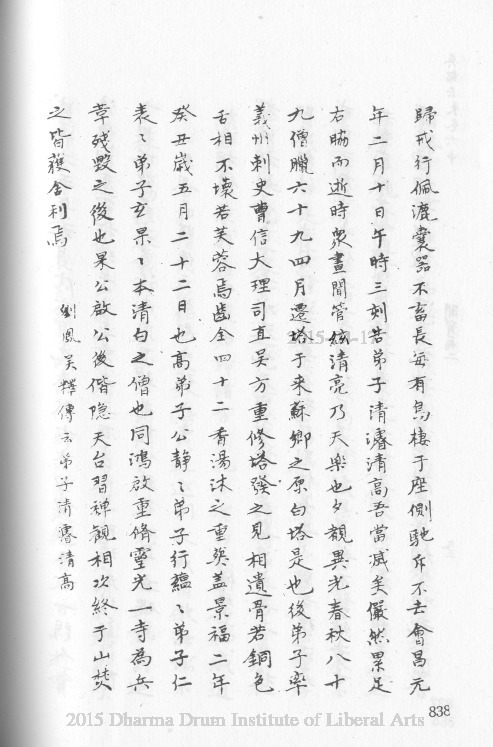 歸戒行佩漉囊器不畜長每有鳥棲于座側馳斥不去會昌元
年二月十日午時三刻告弟子清濬清高吾當滅矣儼然累足
右脇而逝時眾晝聞管絃清亮乃天樂也夕覩異光春秋八十
九僧臘六十九四月遷塔于來蘇鄉之原白塔是也後弟子率
義州刺史曹信大理司直吳方重修塔發之見相遺骨若銅色
舌相不壞若芙蓉焉齒全四十二香湯沐之重瘞蓋景福二年
癸丑歲五月二十二日也高弟子公靜〻弟子行蘊〻弟子仁
表〻弟子玄杲〻本清白之僧也同鴻啟重脩靈光一寺為兵
葦殘毀之後也果公啟公後偕隱天台習禪觀相次終于山焚
之皆獲舍利焉 劉鳳吳釋傳云弟子清霱清高
838
2015 Dharma Drum Institute of Liberal Arts